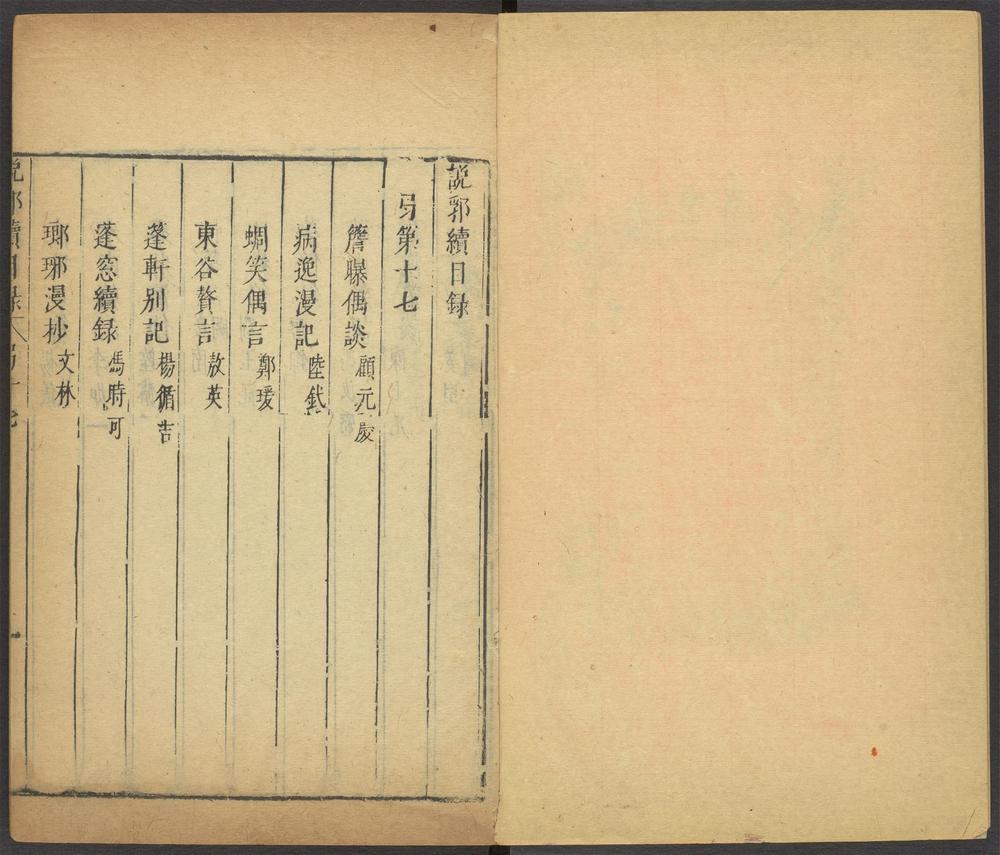 說郛續目録
弓第十七
簷曝偶談 顧元慶
病逸漫記 陸釴
蜩笑偶言 鄭瑗
東谷贅言 敖英
蓬軒别記 楊循吉
蓬窓續録 馮時可
瑯琊漫抄 文林
說郛續目録 弓十七